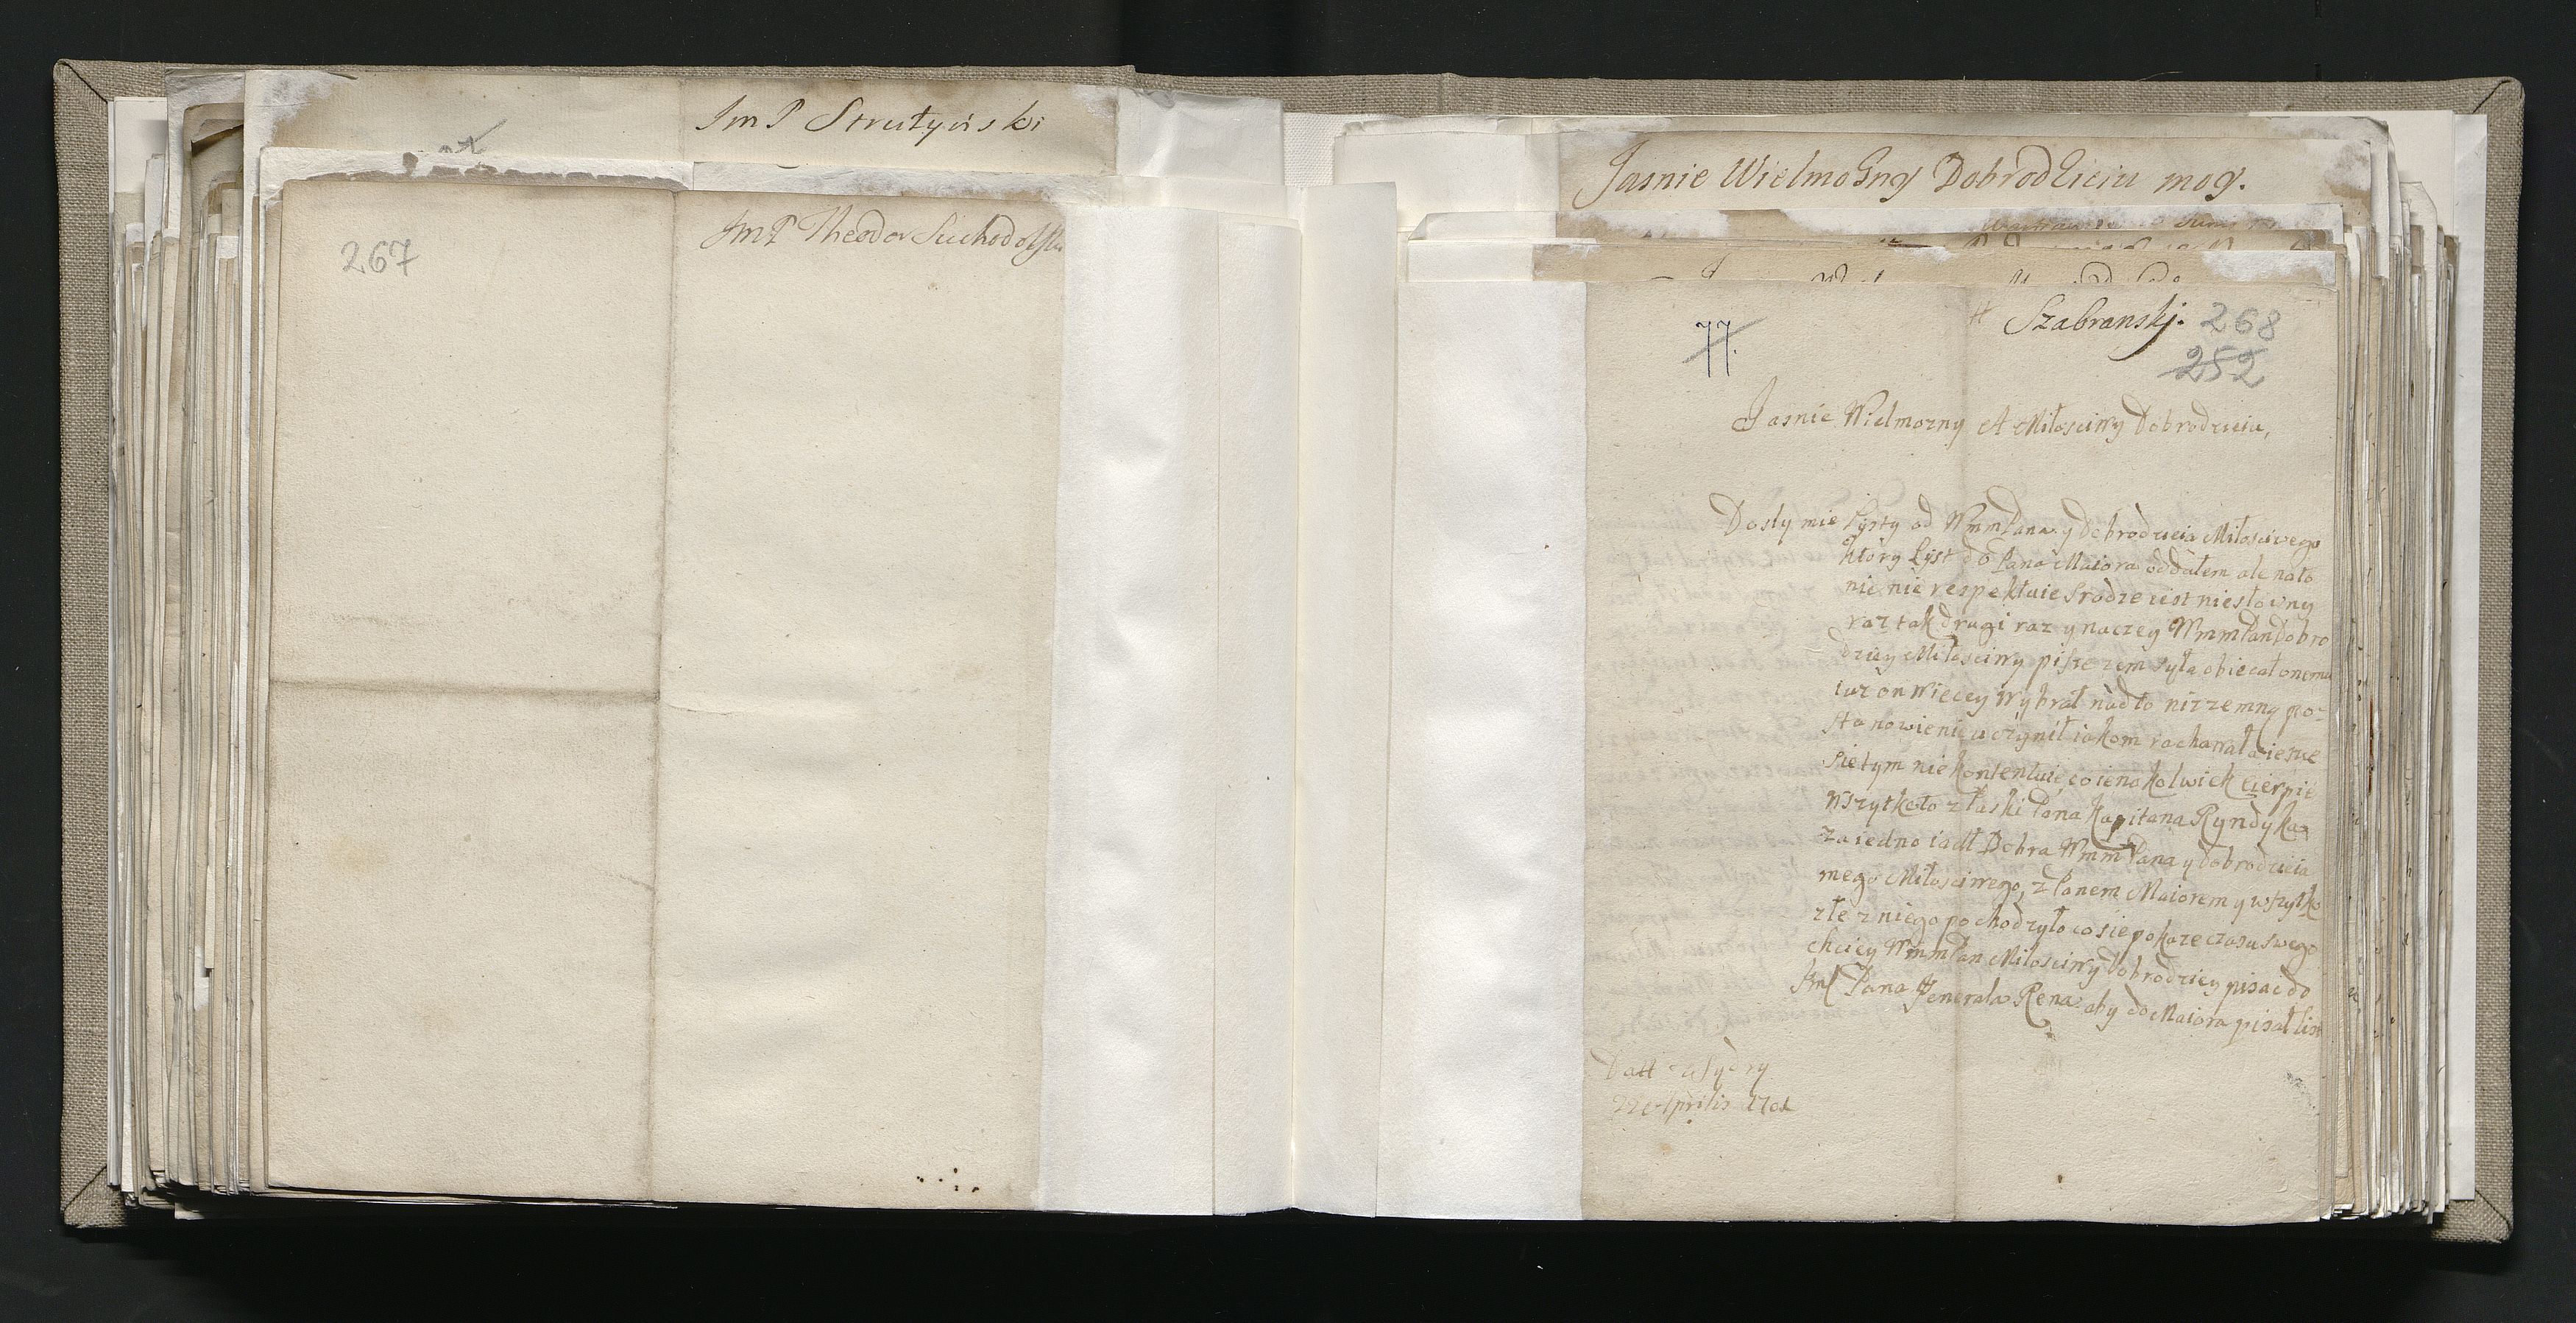 JmP Strutyński
267
JmP Theodor Suchodolski
Jasnie Wielmożny Dobrodzieiu moy.
77.
Szabranskj. 268
252
Jasnie Wielmozny A Miłosciwy Dobrodzieiu,
Dosły mie Lysty od WmmPana y Dobrodzieia Miłosciwego
ktory Lyst do Pana Maiora oddałem ale nato
nic nie respektuie srodze iest niesłowny
raz tak drugi raz ynaczey WmmPan Dobro
dziey Miłosciwy pisze zem syła obiecał onemu
iuz on wiecey wybrał nad to niz zemną po-
stanowienie uczynił iakom rachował a iesze
sie tym nie kontentuie, co ieno kolwiek cierpie
wszytko to z łaski Pana Kapitana Ryndyka
za iedno iadł Dobra WmmPana y Dobrodzieia
mego Miłosciwego, z Panem Maiorem y wszytko
złe z niego pochodzyło co sie pokaze czasu swego
chciey WmmPan Miłosciwy Dobrodziey pisac do
Jm Pana Jenerala Rena aby do Maiora pisał list
Datt z Sydry
22 Aprilis 1701